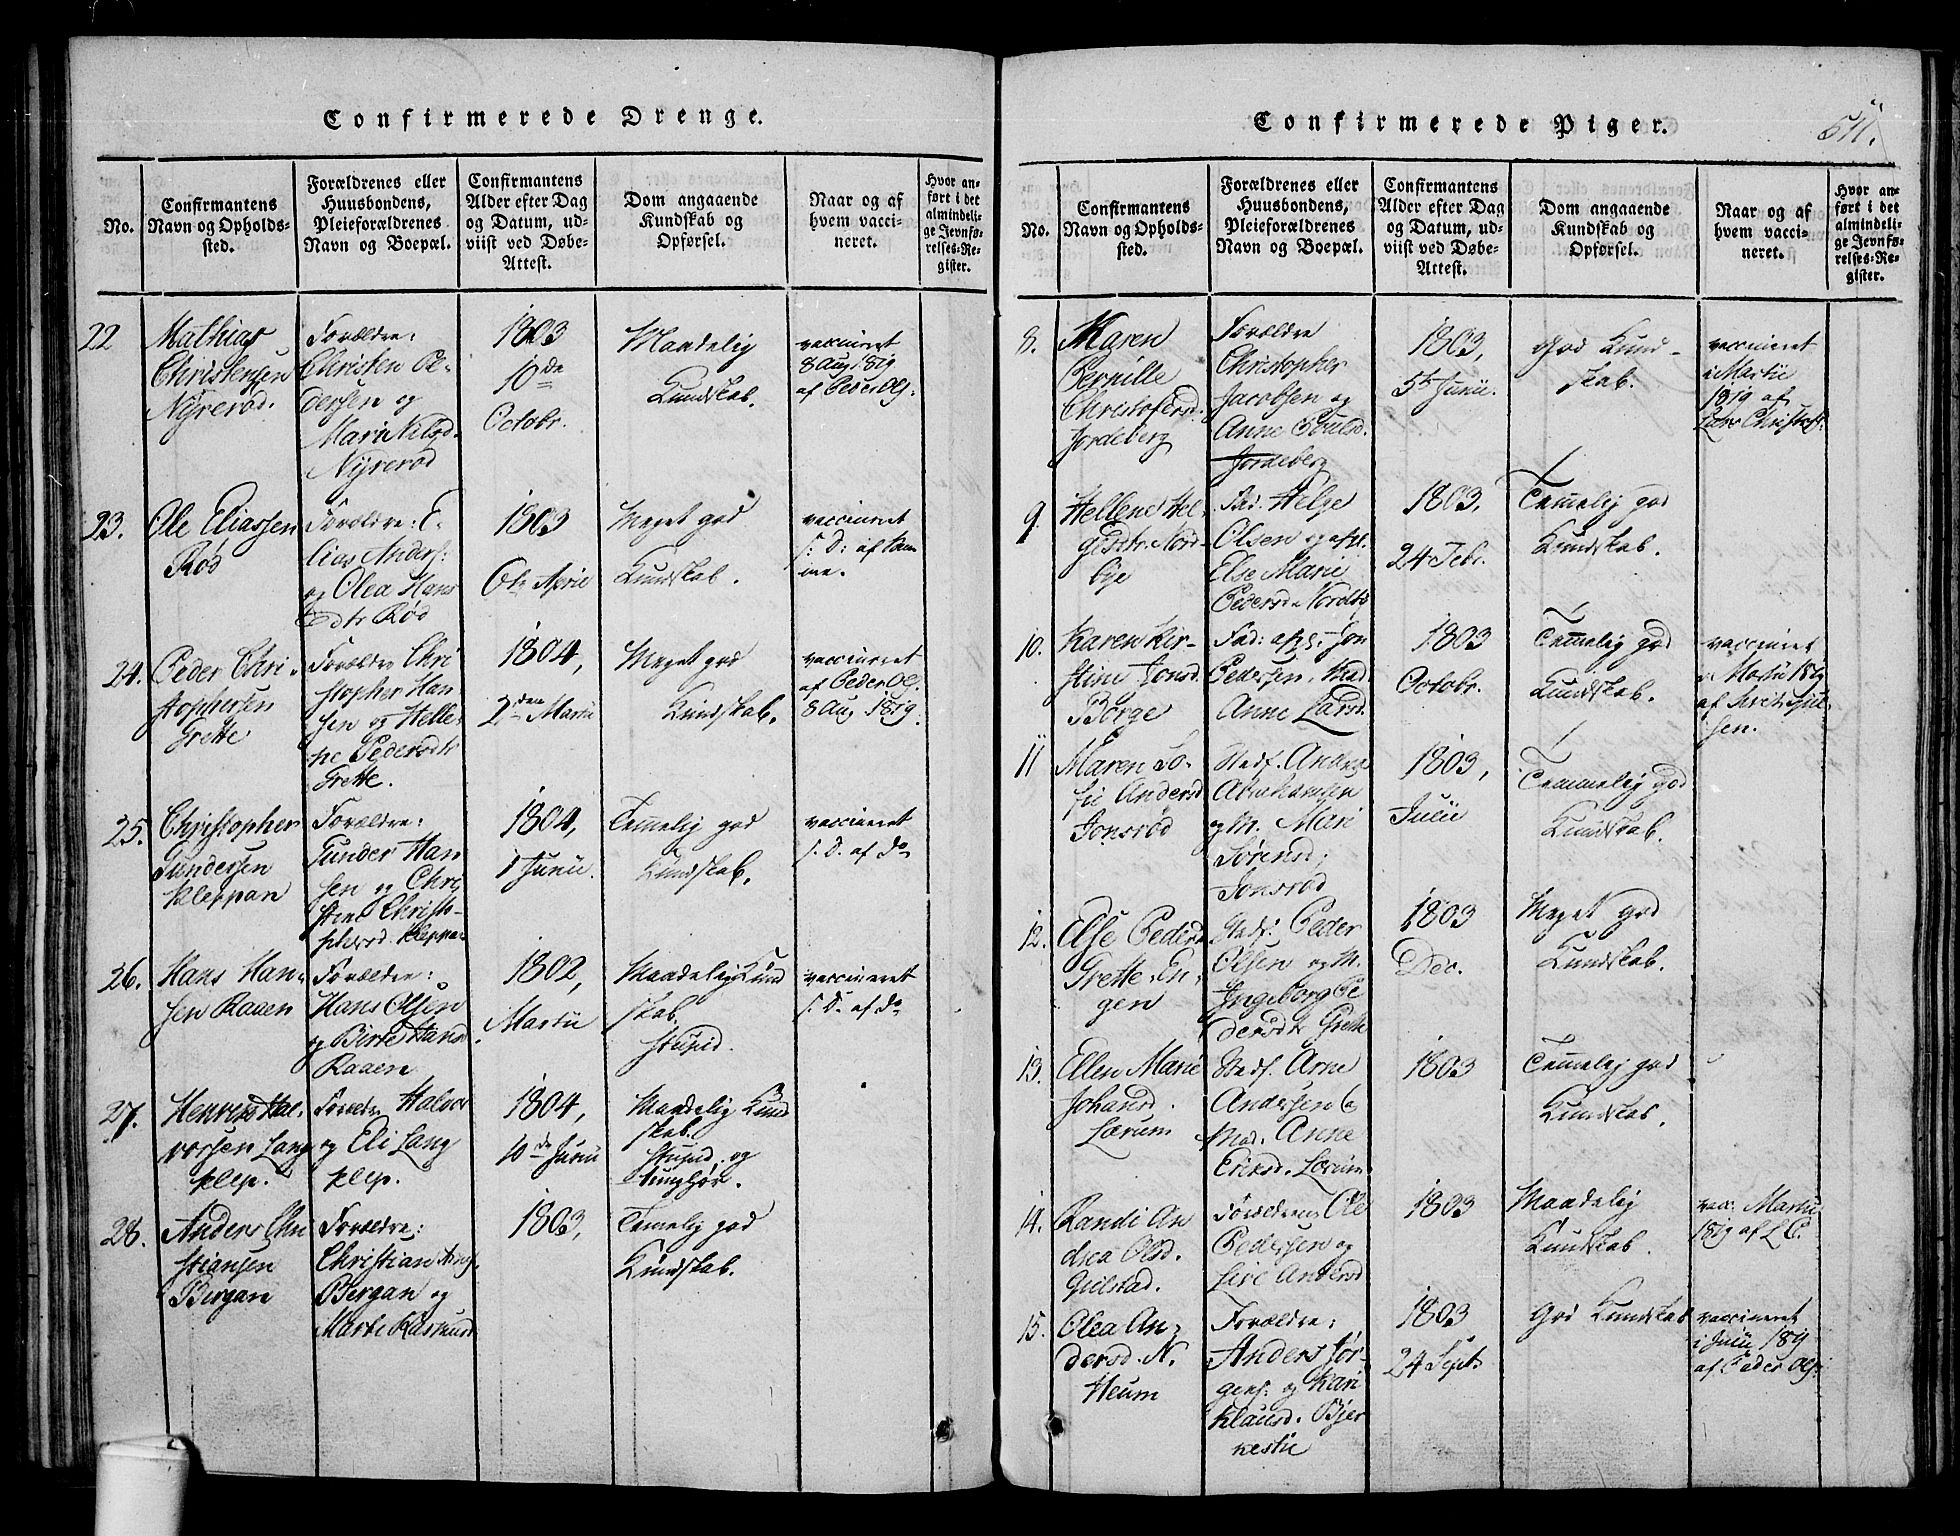 Confirmerede Drenge.
No.
Confirmantens
Navn og Opholds-
sted.
Forældrenes eller
Huusbondens,
Pleieforældrenes
Navn og Boepæl.
Confirmantens
Alder efter Dag
og Datum, ud-
viist ved Døbe-
Attest.
Dom angaaende
Kundskab og
Opførsel.
Naar og af
hvem vacci-
neret.
Hvor an-
ført i det
almindeli-
ge Jevnfø-
relses-Re-
gister.
22
Mathias
Christensen
Nÿrerød.
Forældre:
Christen Pe-
dersen og
Mari Nilsd.
Nÿrerød
1803
10de
Octobr.
Maadelig
Kundskab.
vaccineret
8 Aug 1819
af Peder Ols.
23.
Ole Eliassen
Rød
Forældre: E-
lias Anders:
og Olea Hans
Dtr Rød
1803
April
Meget god
Kundskab.
vaccineret
s: D: af
24.
Peder Chri-
stophersen
Grette
Forældre Chri
stopher Han-
sen og Helle-
ne Pedersdtr
Grette.
1804,
2den Martii
Meget god
Kundskab.
vaccineret
af Peder Ol.
8 Aug 1819.
25.
Christopher
Gundersen
Kleppan
Forældre:
Gunder Han
sen og Chri
stine Christo-
phersd. Kleppan
1804,
1 Junii.
Temmelig god
Kundskab.
vaccineret
s. D. af do
26.
Hans Han-
sen Raaen
Forældre:
Hans Olsen
og Birte Hansd
Raaen
1802,
Martii
Maadelig Kund
skab.
stupid.
vaccineret
s. D. af do
27.
Henrik Hal-
vorsen Lang
klep.
Foreldr. Halvor
og Eli Lang
klep.
1804,
10de Junii
Maadelig Kund
skab.
stupid og
tunghør.
28.
Anders Chri
stiansen
Bergan
Forældre:
Christian
Bergan og
Marte Rasmusd
1803,
Temelig god
Kundskab.
Confirmerede Piger.
511.
No.
Confirmantens
Navn og Opholds-
sted.
Forældrenes eller
Huusbondens,
Pleieforældrenes
Navn og Boepæl.
Confirmantens
Alder efter Dag
og Datum, ud-
viist ved Døbe-
Attest.
Dom angaaende
Kundskab og
Opførsel.
Naar og af
hvem vacci-
neret.
Hvor an-
ført i det
almindeli-
ge Jevnfø-
relses-Re-
gister.
8.
Maren
Pernille
Christofersd.
Jordeberg
Forældre
Christopher
Jacobsen og
Anne Poulsd.
Jordeberg
1803,
5te Junii.
God Kund-
skab.
vaccineret
i Martii
1819 af
Lars Christofs.
9.
Hellene Hel-
gesdtr. Nord-
bÿe
Fad. Helge
Olsen og afdl.
Else Marie
Pedersd. Nordb
1803.
24 Febr.
Temelig god
Kundskab.
10.
Karen Kir-
stine Jonsd.
Borge
Fad: afd: Jon
Pedersen, Mod
Anne Larsd.
1803
Octobr.
Temelig god
Kundskab.
vaccineret
i Martii 1819
af
sen.
11
Maren So-
fie Andersd
Jonsrød
Andrs
Abrahamsen
og M. Mari
Sørensd;
Jonsrød
1803,
Julii
Temmelig god
Kundskab.
12.
Else Pedersd
Grette En-
gen
Peder
Olsen og M.
Ingeborg Pe
dersdtr Grette
1803
Dec.
Meget god
Kundskab.
13.
Ellen Marie
Johansd.
Lærum
Arne
Andersen
Mod. Anne
Eriksd. Lærum.
1803
Temmelig god
Kundskab.
14.
Randi An
drea Olsd.
Gulstad.
Forældrene Ole
Pedersen og
Live Andersd
1803
Maadelig
Kundskab.
vacc. Martii
1819 af L C.
15.
Olea An-
dersd. N.
Heum
Forældre:
Anders Jør-
gens: og Kari
Klausd. Bjer
kestii
1803
24 Sept.
God Kundskab
vaccineret
i Junii 1819
af Peder Ols: